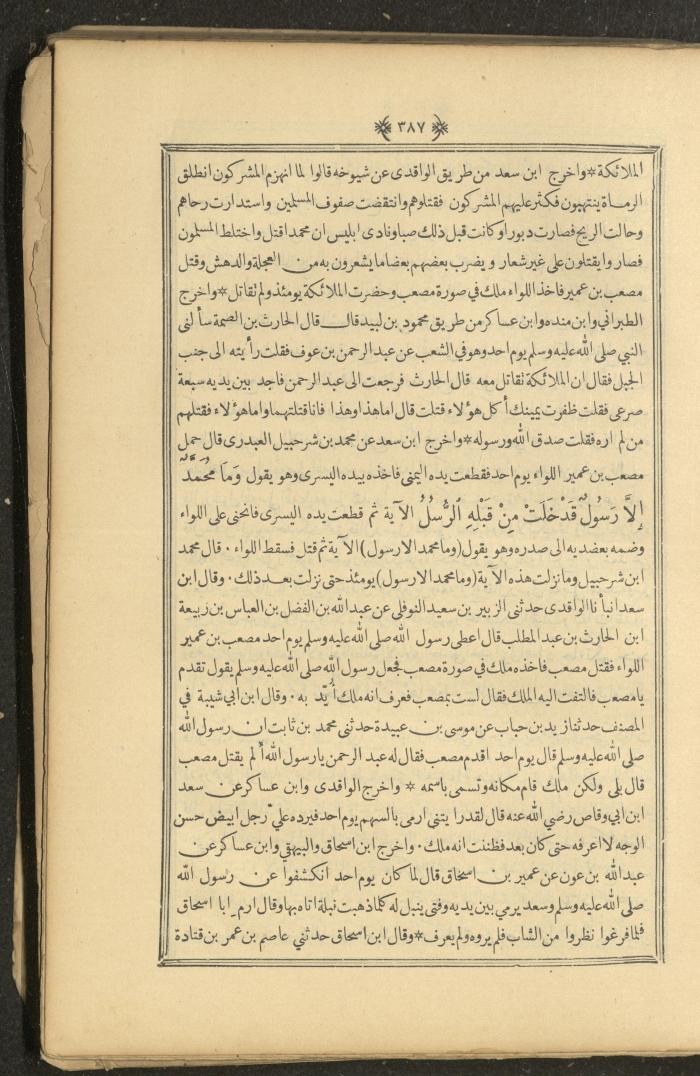 ٣٨٧
الملائكة*واخرج ابن سعد من طريق الواقدى عن شيوخه قالوا لما انهزم المشركون انطلق
الرماة ينتهبون فكثر عليهم المشركون فقتلوهم وانتقضت صفوف المسلمين واستدارت رحاهم
وحالت الريح فصارت دبورا وكانت قبل ذلك صبا ونادى ابليس ان محمدا قتل واختلط المسلمون
فصاروا يقتلون على غير شعار ويضرب بعضهم بعضا ما يشعرون به من العجلة والدهش وقتل
مصعب بن عمير فاخذ اللواء ملك في صورة مصعب وحضرت الملائكة يومئذ ولم تقاتل*واخرج
الطبراني وابن منده وابن عساكر من طريق محمود بن لبيد قال قال الحارث بن الصمة سألنى
النبي صلى الله عليه وسلم يوم احد وهو في الشعب عن عبد الرحمن بن عوف فقلت رأيته الى جنب
الجبل فقال ان الملائكة تقاتل معه قال الحارث فرجعت الى عبد الرحمن فاجد بين يديه سبعة
صرعى فقلت ظفرت يمينك أكل هؤلاء قتلت قال اما هذا وهذا فانا قتلتهما واما هؤلاء فقتلهم
من لم اره فقلت صدق الله ورسوله*واخرج ابن سعد عن محمد بن شرحبيل العبدرى قال حمل
مصعب بن عمير اللواء يوم احد فقطعت يده اليمنى فاخذه بيده اليسرى وهو يقول وَمَا مُحَمَّدٌ
إِلَّا رَسُولٌ قَدْ خَلَتْ مِنْ قَبْلِهِ الرُّسُلُ الآية ثم قطعت يده اليسرى فانحنى على اللواء
وضمه بعضديه الى صدره وهو يقول (وما محمد الا رسول) الآية ثم قتل فسقط اللواء. قال محمد
ابن شرحبيل وما نزلت هذه الآية (وما محمد الا رسول) يومئذ حتى نزلت بعد ذلك. وقال ابن
سعد انبأنا الواقدى حدثنى الزبير بن سعيد النوفلى عن عبد الله بن الفضل بن العباس بن ربيعة
ابن الحارث بن عبد المطلب قال اعطى رسول الله صلى الله عليه وسلم يوم احد مصعب بن عمير
اللواء فقتل مصعب فاخذه ملك في صورة مصعب فجعل رسول الله صلى الله عليه وسلم يقول تقدم
يا مصعب فالتفت اليه الملك فقال لست بمصعب فعرف انه ملك أُيّد به. وقال ابن ابي شيبة في
المصنف حدثنا زيد بن حباب عن موسى بن عبيدة حدثنى محمد بن ثابت ان رسول الله
صلى الله عليه وسلم قال يوم احد اقدم مصعب فقال له عبد الرحمن يا رسول الله ألم يقتل مصعب
قال بلى ولكن ملك قام مكانه وتسمى باسمه * واخرج الواقدى وابن عساكر عن سعد
ابن ابي وقاص رضي الله عنه قال لقد رايتنى ارمى بالسهم يوم احد فيرده عليّ رجل ابيض حسن
الوجه لا اعرفه حتى كان بعد فظننت انه ملك. واخرج ابن اسحاق والبيهقي وابن عساكر عن
عبد الله بن عون عن عمير بن اسحاق قال لما كان يوم احد انكشفوا عن رسول الله
صلى الله عليه وسلم وسعد يرمي بين يديه وفتى ينبل له كلما ذهبت نبلة اتاه بها وقال ارم ابا اسحاق
فلما فرغوا نظروا من الشاب فلم يروه ولم يعرف*وقال ابن اسحاق حدثني عاصم بن عمر بن قتادة